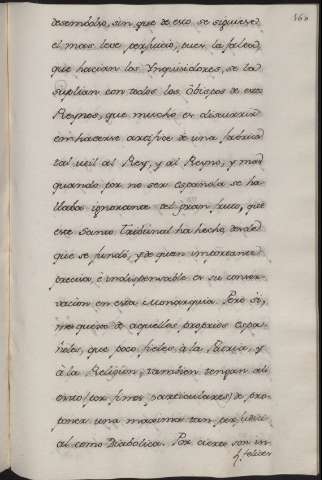 160
desembolso, sin que de esto se siguiese
el mas leve perjuicio, pues la falta
que hacian los Ynquisidores, se la
suplian con todos los Obispos de estos
Reynos, que mucho es discurrir
en hacerse artifice de una fabrica
tal util al Rey, y al Reyno, y mas
quando por no ser española se ha
llaba ignorante del gran fruto, que
este Santo Tribunal ha hecho desde
que se fundó, y de quan importante
precisa, è indispensable es su conser-
vacion en esta Monarquia. Pero si,
me quexo de aquellos proprios Espa-
ñoles, que poco fieles à la Patria, y
à la Religion, tambien tengan ali
ento (por fines particulares) de pro-
poner una maxima tan
al como Diabolica. Por cierto son in-
felices